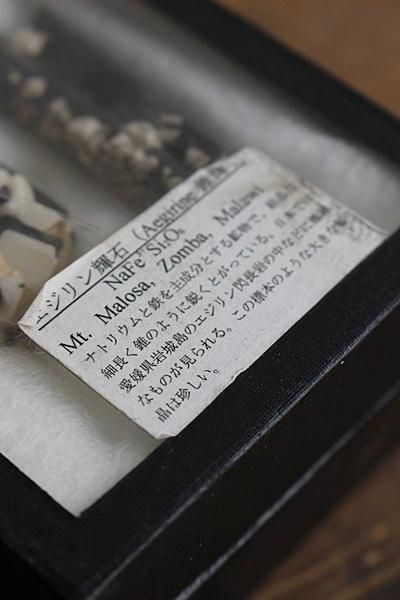 エジリン輝石 (Aegirine
NaFe³⁺Si₂O₆
Mt. Malosa, Zomba, Malawi
ナトリウムと鉄を主成分とする鉱物で、
細長く錐のように鋭くとがっている。日本では
愛媛県岩城島のエジリン閃長岩の中などに
なものが見られる。この標本のような大きな
品は珍しい。